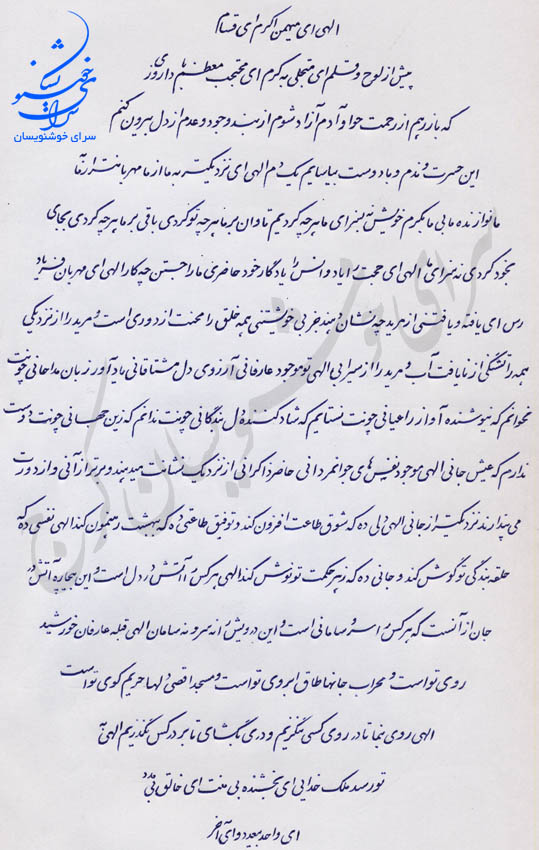 الهی ای مهیمن اکرم ای قسام
پیش از لوح و قلم ای متجلی به کرم ای محتجب معظم بما دار روزی
که باز رهم از زحمت حوا و آدم آزاد شوم از بند وجود و عدم از دل بیرون کنیم
این حسرت و ندم و با دوست بیاساییم یک دم الهی ای نزدیکتر به ما از ما مهربانتر از ما
ما نوازنده ما بی ما بکرم خویش نه بسزای ما هر چه کردیم تاوان بر ما هر چه تو کردی باقی بر ما هر چه کردی بجای
بخود کردی نه بسزای ما الهی ای حجت را یاد و انس را یادگار خود حاضری ما را جستن چه کار الهی ای مهربان فریاد
رس ای یافته و یافتنی از مرید چه نشان دهند جز بی خویشتنی همه خلق را محنت از دوری است و مرید را از نزدیکی
همه را تشنگی از نایافت آب و مرید را از سیرابی الهی تو موجود عارفانی آرزوی دل مشتاقانی یادآور زبان مداحانی چونت
نخوانم که نیوشنده آواز راعیانی چونت نستایم که شاد کننده دل بندگانی چونت ندانم که زین جهانی چونت دوست
ندارم که عیش جانی الهی موجود نفس های جوانمردانی حاضر ذاکرانی از نزدیک نشانت میدهند و برتر از آنی و از دورت
می پندارند نزدیکتر از جانی الهی دلی ده که شوق طاعت افزون کند و توفیق طاعتی ده که ببهشت رهنمون کند الهی نفسی ده که
حلقه بندگی تو گوش کند و جانی ده که زهر حکمت تو نوش کند الهی هر کس را آتش در دل است و این بیچاره را آتش در
جان از آنست که هر کس را سر و سامانی است و این درویش را نه سر و نه سامان الهی قبله عارفان خورشید
روی تو است و محراب جانها طاق ابروی تو است و مسجد اقصی دلها حریم کوی تو است
الهی روی بنما تا در روی کسی ننگریم و دری بگشای تا بر در کس نگذریم الهی
تو رسد ملک خدایی ای بخشنده بی منت ای خالق بی مدد
ای واحد بیعدد و ای آخر
خوشنویسان
سرای
سرای خوشنویسان